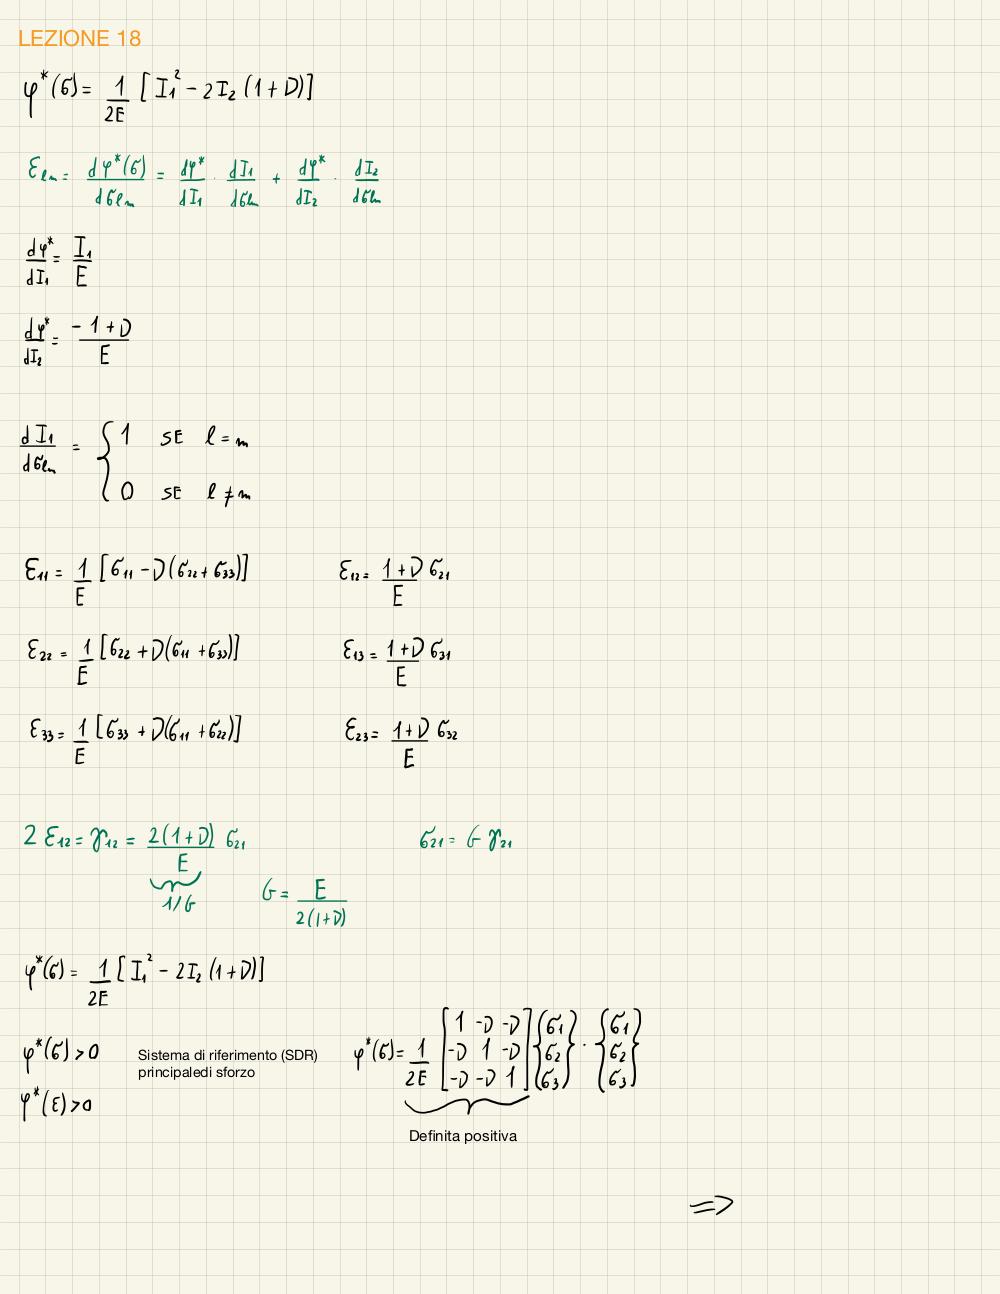 LEZIONE 18
φ*(σ) = 1/2E [I₁² - 2I₂ (1+ν)]
εₗₘ = dφ*(σ)/dσₗₘ = dφ*/dI₁ · dI₁/dσₗₘ + dφ*/dI₂ · dI₂/dσₗₘ
dφ*/dI₁ = I₁/E
dφ*/dI₂ = -1+ν/E
dI₁/dσₗₘ = { 1 SE l = m
0 SE l ≠ m
ε₁₁ = 1/E [σ₁₁ - ν(σ₂₂ + σ₃₃)] ε₁₂ = 1+ν/E σ₂₁
ε₂₂ = 1/E [σ₂₂ + ν(σ₁₁ + σ₃₃)] ε₁₃ = 1+ν/E σ₃₁
ε₃₃ = 1/E [σ₃₃ + ν(σ₁₁ + σ₂₂)] ε₂₃ = 1+ν/E σ₃₂
2 ε₁₂ = γ₁₂ = 2(1+ν)/E σ₂₁ σ₂₁ = G γ₂₁
1/G G = E/2(1+ν)
φ*(σ) = 1/2E [I₁² - 2I₂ (1+ν)]
φ*(σ) > 0 Sistema di riferimento (SDR) principaledi sforzo φ*(σ) = 1/2E [1 -ν -ν; -ν 1 -ν; -ν -ν 1] {σ₁ σ₂ σ₃} · {σ₁ σ₂ σ₃}
φ*(ε) > 0
Definita positiva
⇒